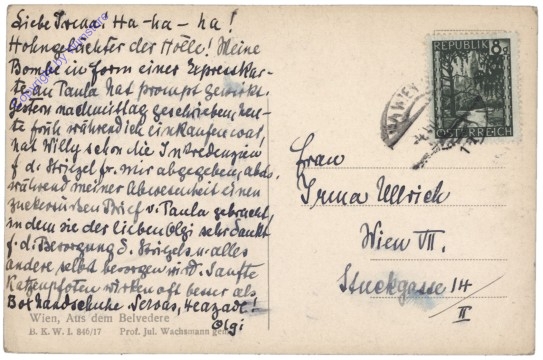 Liebe Irma! Ha-ha-ha!
Hohngelächter der Hölle! Meine
Bombe in form einer Expresskar-
te an Paula hat prompt gewirkt.
Gestern nachmittag geschrieben, heu-
te früh während ich einkaufen war,
hat Willy schon die Ingredenzien
f. d. Striezel fr. mir abgegeben, abds.
während meiner Abwesenheit einen
zuckersüßen Brief v. Paula gebracht,
in dem sie der lieben Olgi sehr dankt
f. d. Besorgung d. Striezels u. alles
andere selbst besorgen wird. Sanfte
Katzenpfoten wirken oft besser als
Boxhandschuhe. Servas,
Olgi
Wien, Aus dem Belvedere
B. K. W. I. 846/17 Prof. Jul. Wachsmann
REPUBLIK 8
ÖSTERREICH
WIEN
Frau
Irma Ullrich
Wien VII.
Stuckgasse 14/II